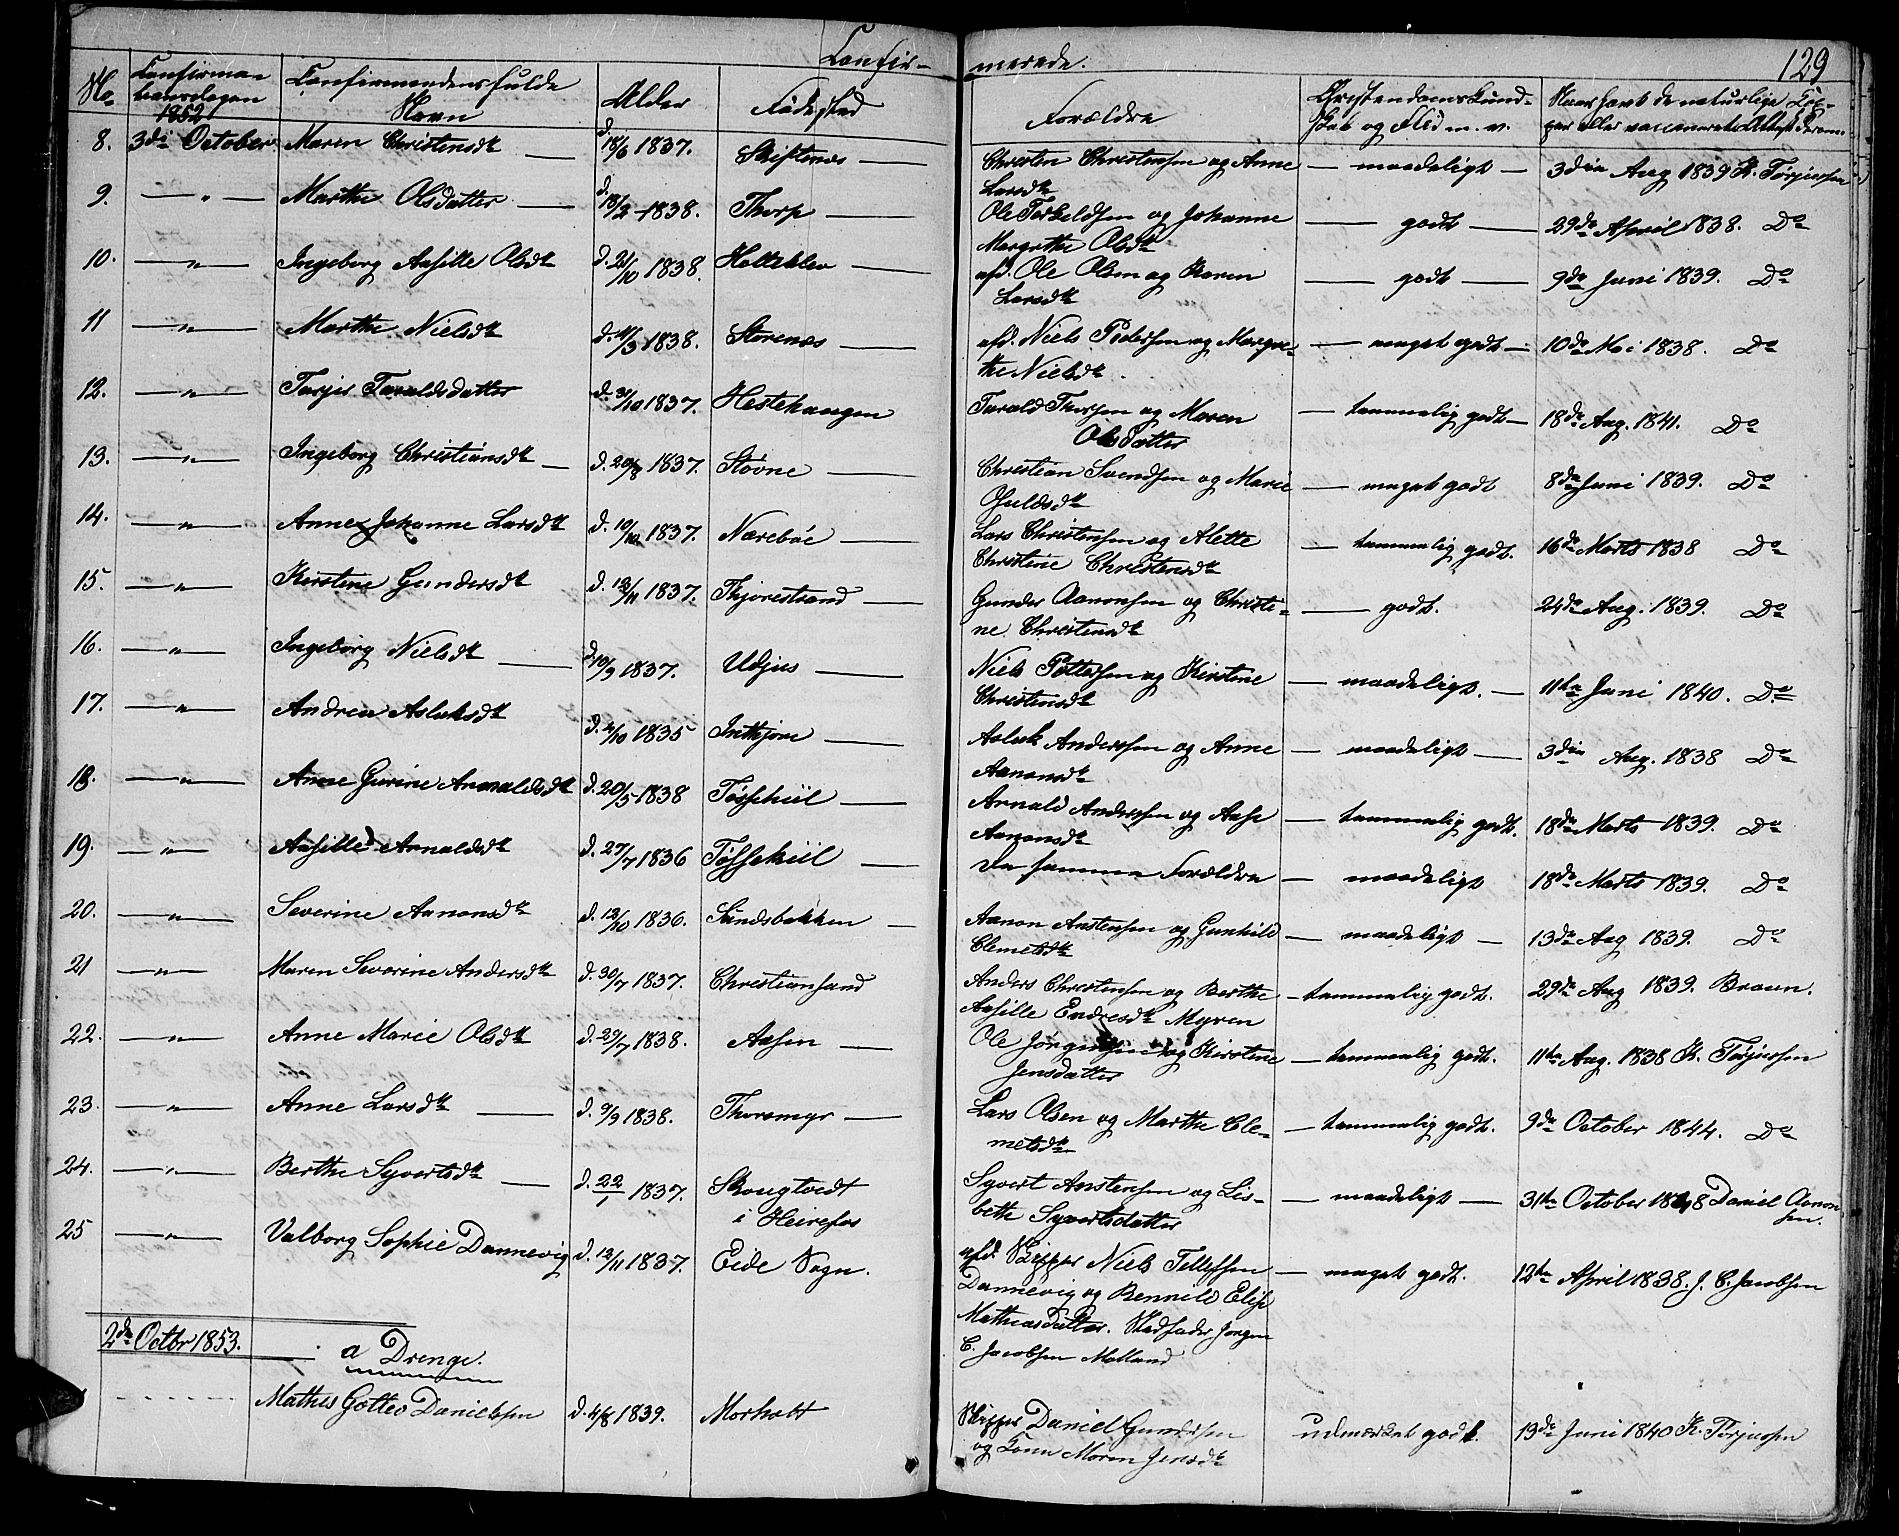 Confir-
merede.
129
No
Confirma-
tionsdagen
1852
Confirmandens fulde
Navn
Alder
Fødested
Forældre
Christendoms Kund-
skab og Flid m. v.
Naar havt de naturlige Kop-
per eller vaccineret
8. 3die October Maren Christensdtr d. 18/6 1837. Skiftenæs Christen Christensen og Anne — maadeligt — 3die Aug 1839 K. Torjussen
Larsdtr
9. — " — Marthe Olsdatter d. 18/2 1838. Thorp Ole Terkeldsen og Johanne — godt — 29de April 1838. Do
Margrethe Olsdtr
10. — " — Ingeborg Aasille Olsdtr d. 21/10 1838. afd. Ole Olsen og Karen — godt — 9de Juni 1839. Do
Larsdtr
11 — " — Marthe Nielsdtr 1838. Storenæs afd. Niels Pedersen og Margre- — meget godt — 10de Mai 1838. Do
the Nielsdtr.
12. — " — Torjer Taraldsdatter d. 31/10 1837. Hestehaugen Tarald Thorsen og Maren — temmelig godt — 18de Aug. 1841. Do
Olsdatter
13. — " — Ingeborg Christiansdtr d. 20/8 1837. Støvne Christian Svendsen og Marie — meget godt 8de Juni 1839. Do
14. — " — Anne Johanne Larsdtr d. 10/10 1837. Nærebøe Lars Christensen og Alette — temmelig godt. 16de Marts 1838 Do
Christine Christensdtr
15. — " — Kirstine Gundersdtr d. 13/11 1837. Thjorestrand Gunder Aanonsen og Christi- — godt. 24de Aug. 1839. Do
ne Christensdtr
16. — " — Ingeborg Nielsdtr d. 10/9 1837. Udjus Niels Pettersen og Kirstine — maadeligt. — 11te Juni 1840. Do
Christensdtr
17. — " — Andrea Aslaksdtr 1835 Inthjore Aslak Andersen og Anne — maadeligt — 3die Aug. 1838 Do
Aanonsdtr
18. — " — Anne Gurine Arnaldsdtr d. 20/5 1838 Tøssekiil Arnald Andersen og Aase — temmelig godt. 18de Marts 1839. Do
Aanonsdtr
19. — " — Aasille Arnaldsdtr d. 27/7 1836 Tøssekiil De samme Forældre — maadeligt 18de Marts 1839. Do
20. — " — Severine Aanonsdtr d. 12/10 1836. Sandsbakken Aanon Anstensen og Gunhild — maadeligt — 13de Aug 1839. Do
Clemetsdtr
21 — " — Maren Severine Andersdtr d. 30/7 1837. Christiansand Anders Christensen og Berthe — temmelig godt. 29de Aug 1839. Braun.
Aasille Endresdtr Myren
22. — " — Anne Marie Olsdtr d. 29/7 1838. Aasen Ole Jørgensen og Kirstine — temmelig godt. 11te Aug. 1838 K. Torjussen
Jensdatter
23. — " — Anne Larsdtr d. 9/9 1838. Thoremyr Lars Olsen og Marthe Cle- — temmelig godt. 9de October 1844. Do
metsdtr
24. — " — Berthe Syvertsdtr d. 22/1 1837. Skougtvedt Syvert Anstensen og Lis- — maadeligt — 31te October Daniel Aanon-
i Heirefos beth Syvertsdatter sen.
25 — " — Valborg Sophie Dannevig d. 12/11 1837. Eide Sogn. afd. Skipper Niels Tellefsen — meget godt. 12te April 1838. J. C. Jacobsen
Dannevig og Bennild Elise
Mathiasdatter. Stedfader Jørgen
C. Jacobsen Molland
2de Octbr 1853.
a Drenge.
Mathis Gottleo Danielsen d. 4/8 1839. Morholt Skipper Daniel Gundersen udmærket godt. 19de Juni 1840 K. Torjussen
og Kone Maren Jensdtr